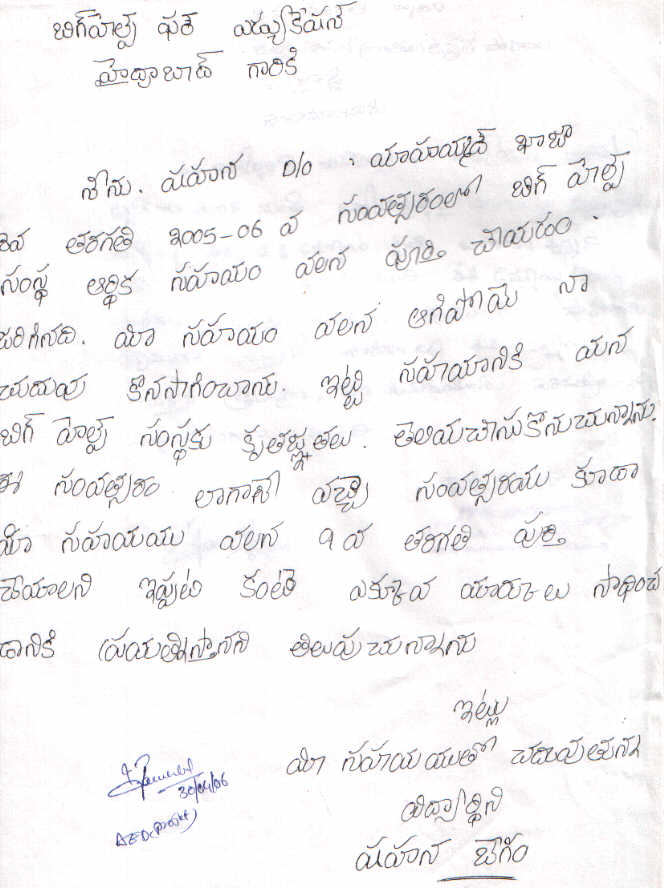 బిగ్‌హెల్ప్ ఫర్ ఎడ్యుకేషన్
హైద్రాబాద్ గారికి
నేను. షహన D/o . మహమ్మద్ ఖాజా
8వ తరగతి 2005-06 వ సంవత్సరంలో బిగ్ హెల్ప్
సంస్థ ఆర్థిక సహాయం వలన పూర్తి చేయడం .
జరిగినది. మీ సహాయం వలన ఆగిపోయె నా
చదువు కొనసాగించాను. ఇట్టి సహాయానికి మన
బిగ్ హెల్ప్ సంస్థకు కృతజ్ఞతలు . తెలియచేసుకొనుచున్నాను.
ఈ సంవత్సరం లాగానే వచ్చే సంవత్సరము కూడా
మీ సహాయము వలన 9 వ తరగతి పూర్తి
చేయాలని ఇప్పటి కంటె ఎక్కువ మార్కులు సాధించ
డానికి ప్రయత్నిస్తానని తెలుపుచున్నాను
ఇట్లు
మీ సహాయముతో చదువుతున్న
విద్యార్థిని
షహన బేగం
30/04/06